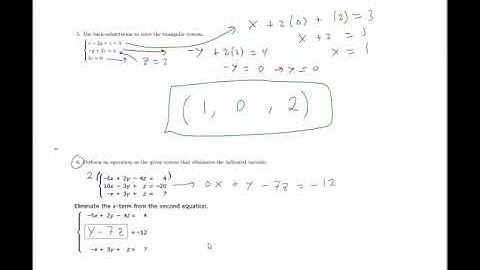 5. Use back-substitution to solve the triangular system.
x + 2y + z = 3
-y + 2z = 4
3z = 6
z = 2
x + 2(0) + (2) = 3
x + 2 = 3
x = 1
-y + 2(2) = 4
-y = 0 → y = 0
(1, 0, 2)
6. Perform an operation on the given system that eliminates the indicated variable.
2
-5x + 2y - 4z = 4
10x - 3y + z = -20
-x + 3y + z = 7
0x + y - 7z = -12
Eliminate the x-term from the second equation.
-5x + 2y - 4z = 4
y - 7z = -12
-x + 3y + z = 7